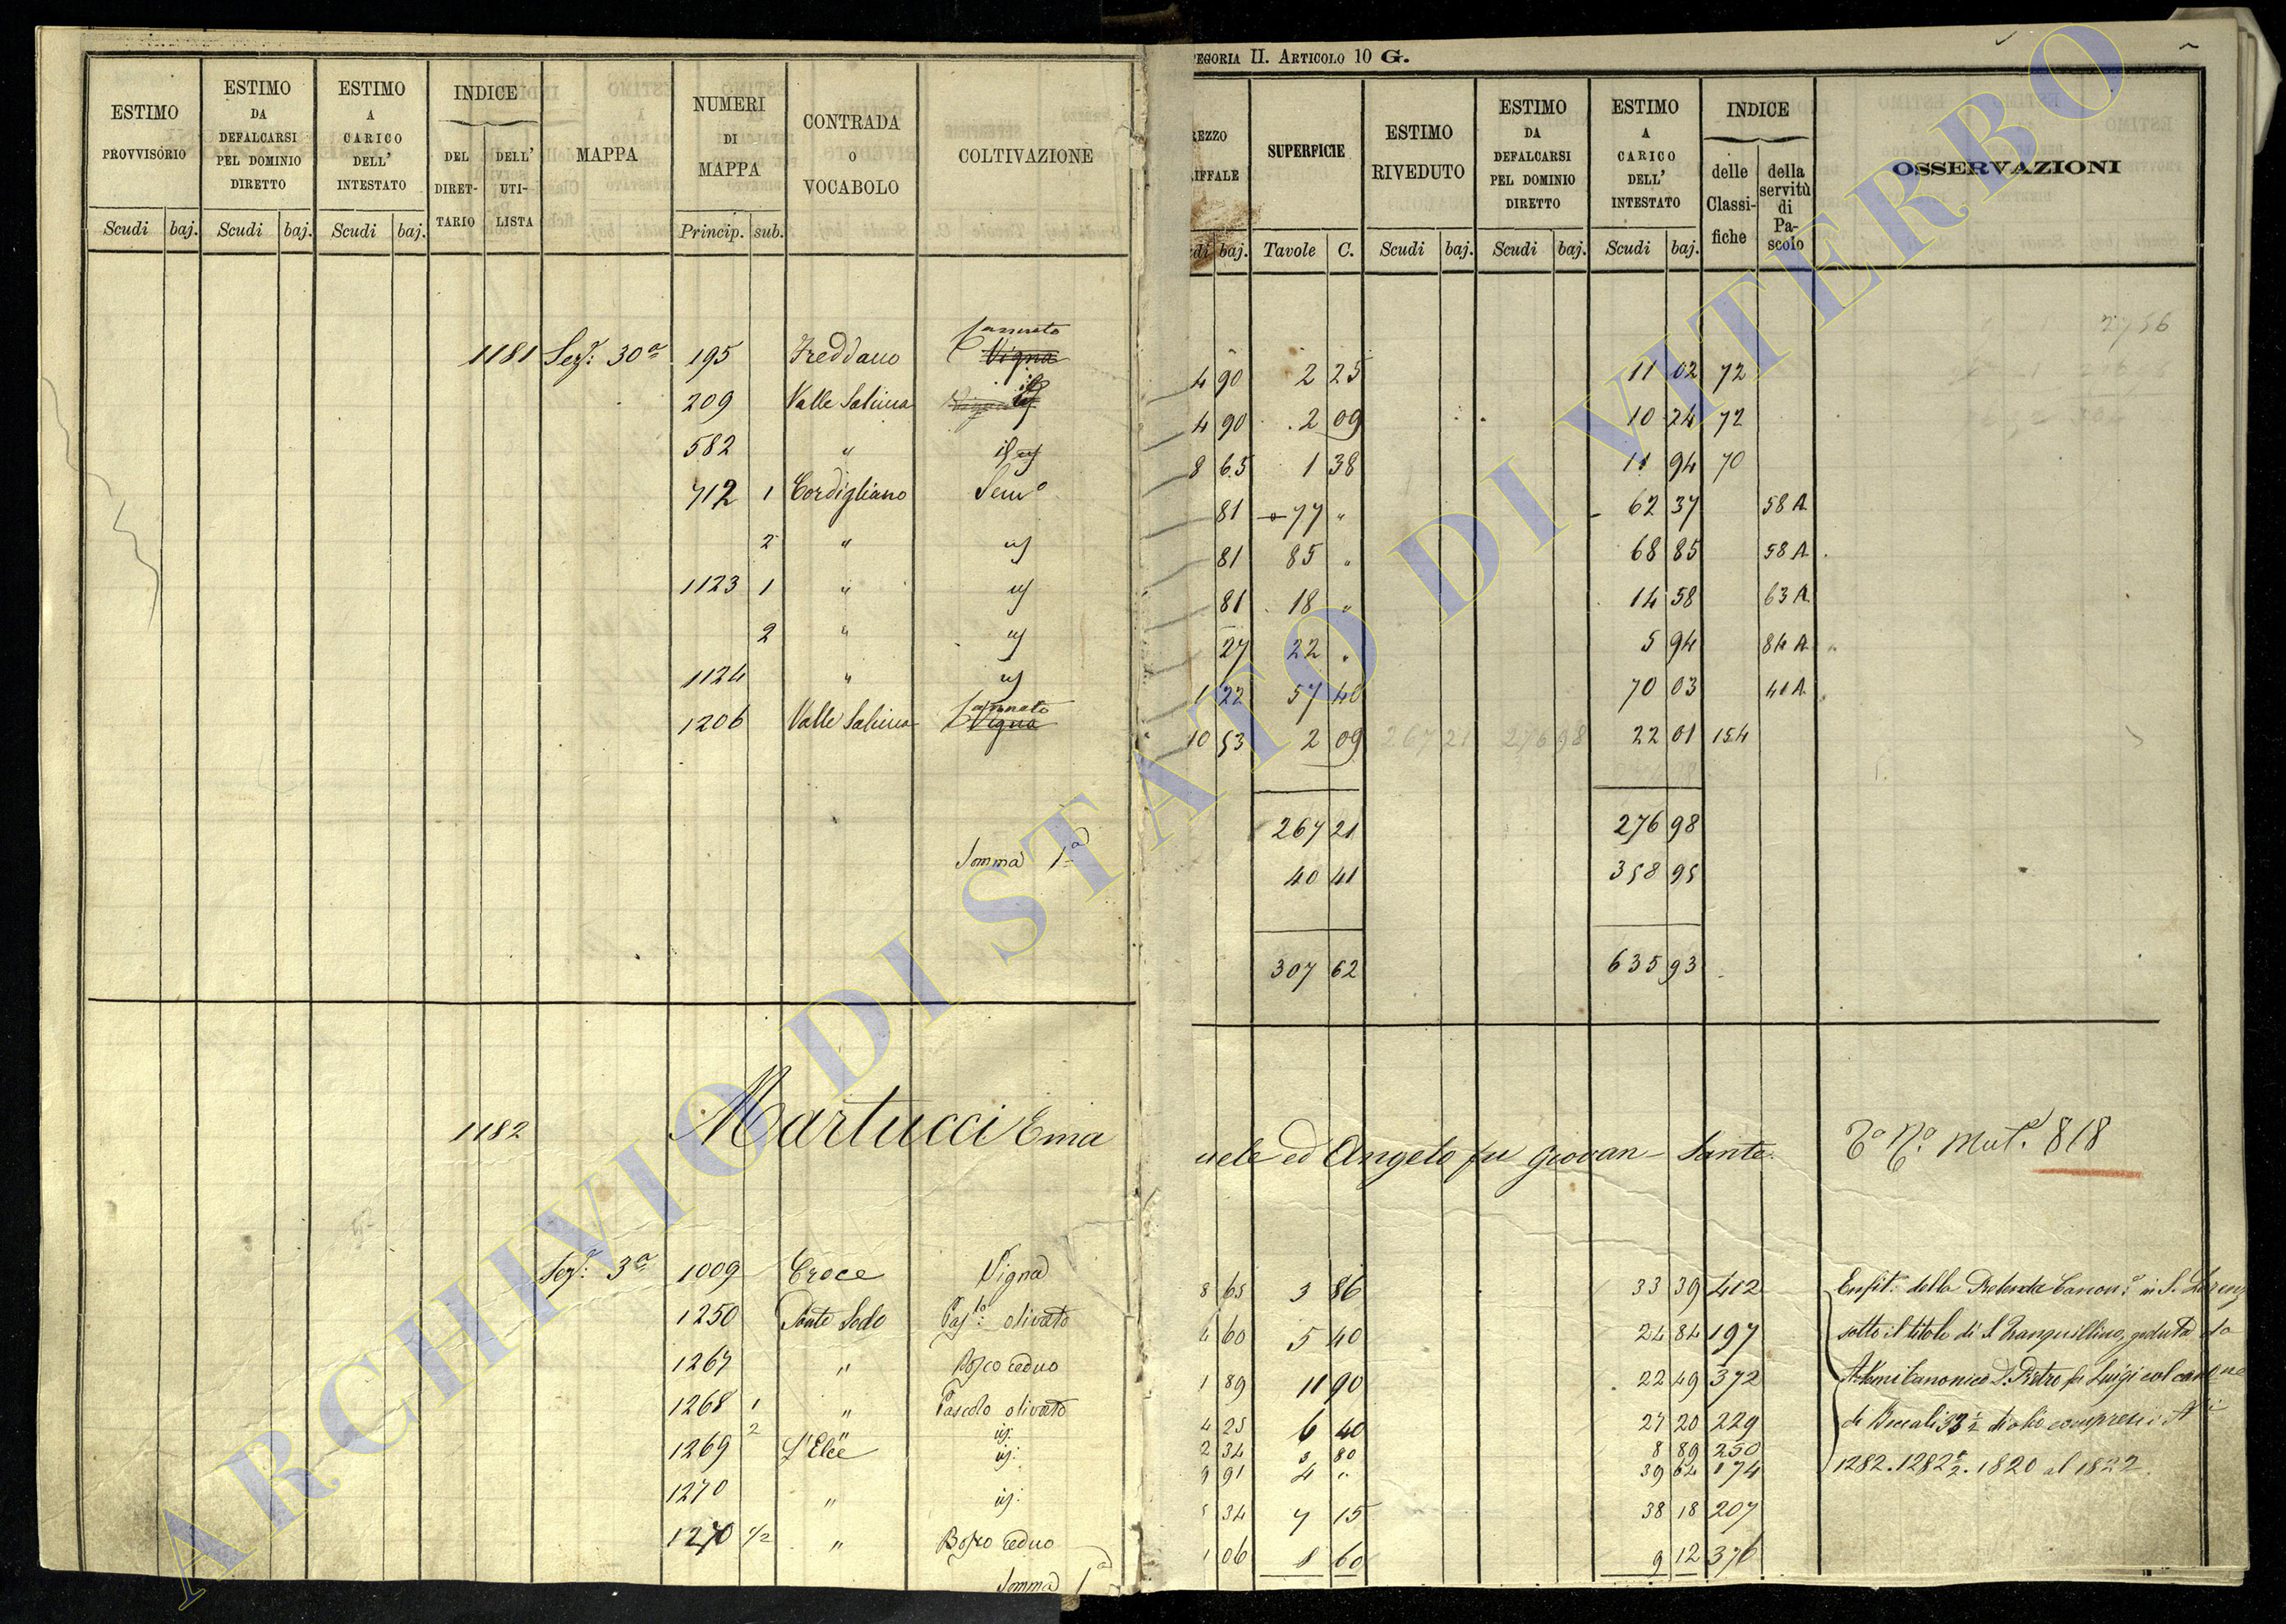 CATEGORIA II. ARTICOLO 10 G.
ESTIMO PROVVISORIO Scudi baj.
ESTIMO DA DEFALCARSI PEL DOMINIO DIRETTO Scudi baj.
ESTIMO A CARICO DELL' INTESTATO Scudi baj.
INDICE DEL DIRET-TARIO DELL' UTI-LISTA
MAPPA
NUMERI DI MAPPA Princip. sub.
CONTRADA O VOCABOLO
COLTIVAZIONE
REZZO RIFFALE baj.
SUPERFICIE Tavole C.
ESTIMO RIVEDUTO Scudi baj.
ESTIMO DA DEFALCARSI PEL DOMINIO DIRETTO Scudi baj.
ESTIMO A CARICO DELL' INTESTATO Scudi baj.
INDICE delle Classi-fiche della servitù di Pa-scolo
OSSERVAZIONI
1181 Sez: 30a 195 Freddano Canneto Vigna 4 90 2 25 11 02 72
209 Valle Salicua Vigna 4 90 2 09 10 24 72
582 " 8 65 1 38 11 94 70
712 1 Cordigliano Semo 81 77 " 62 37 58 A
2 " id 81 85 " 68 85 58 A
1123 1 " id 81 18 " 14 58 63 A
2 " id 27 22 " 5 94 84 A
1124 " id 1 22 57 40 70 03 41 A
1206 Valle Salicua Canneto Vigna 10 53 2 09 267 21 276 98 22 01 154
267 21 276 98
Somma 1a 40 41 358 95
307 62 635 93
1182 Martucci Emanuele ed Angelo fu Giovan Sante Mut. 818
Sez: 3a 1009 Croce Vigna 8 65 3 86 33 39 412 Enfit: della Prebenda Canon: in S. Lorenz
1250 Ponte Sodo Pas:to olivato 4 60 5 40 24 84 197 sotto il titolo di S. Tranquillino, goduta da
1267 " Bosco ceduo 1 89 11 90 22 49 372 Canonico D. Pietro fu Luigi col canone
1268 1 " Pascolo olivato 4 25 6 40 27 20 229 di Boccali 33 1/2 di olio compresi i
2 " id: 2 34 3 80 8 89 250
1269 L'Elce id: 9 91 4 " 39 64 174 1282. 1282 1/2. 1820 al 1822.
1270 " id: 5 34 7 15 38 18 207
1270 1/2 " Bosco ceduo 1 06 8 60 9 12 376
Somma 1a
ARCHIVIO DI STATO DI VITERBO